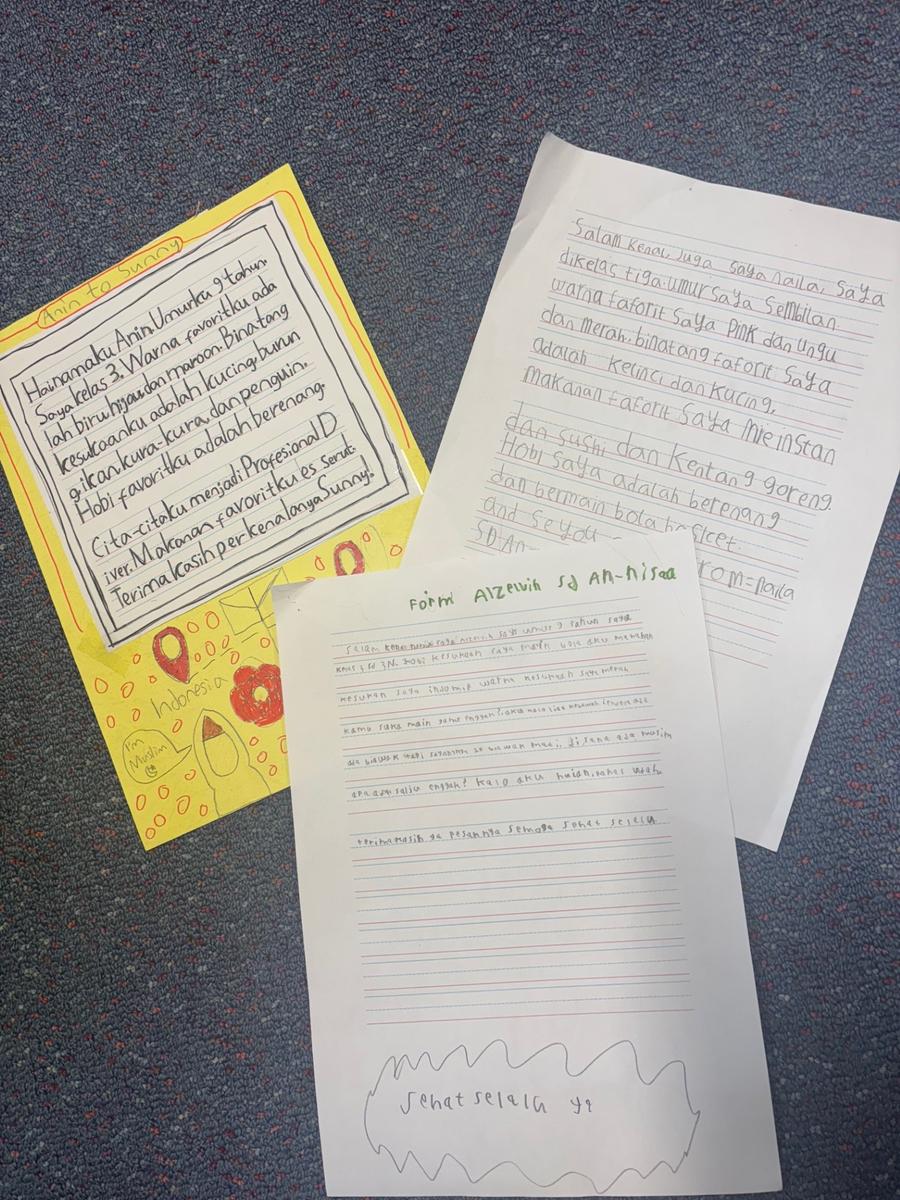 Anin to Sunny
Hai namaku Anin. Umurku 9 tahun.
Saya kelas 3. Warna favoritku ada
lah biru, hijau, dan maroon. Binatang
kesukaanku adalah kucing, burun
g, ikan, kura-kura, dan penguin.
Hobi favoritku adalah berenang.
Cita-citaku menjadi Profesional D
iver. Makanan favoritku es serut.
Terima kasih perkenalanya Sunny!
Indonesia
I'm
Muslim
Salam kenal juga saya naila, saya
dikelas tiga. umur saya sembilan
warna faforit saya Pink dan ungu
dan merah. binatang faforit saya
adalah kelinci dan kucing,
makanan faforit saya mie instan
dan sushi dan kentang goreng
Hobi saya adalah berenang
dan bermain bola basket.
and se you
SD An- rom = naila
Form Alzewin SD AN-nisaa
salam saya umur 9 tahun saya
kelas 3 SD 3N. Hobi kesukaan saya main bola aku makanan
kesukan saya indomie warna kesukaan saya merah
kamu suka main game enggak?
di sana ada musim
apa ada salju enggak? kalo aku hujan,
terimakasih ya pesannya semoga sehat selalu
sehat selalu ya